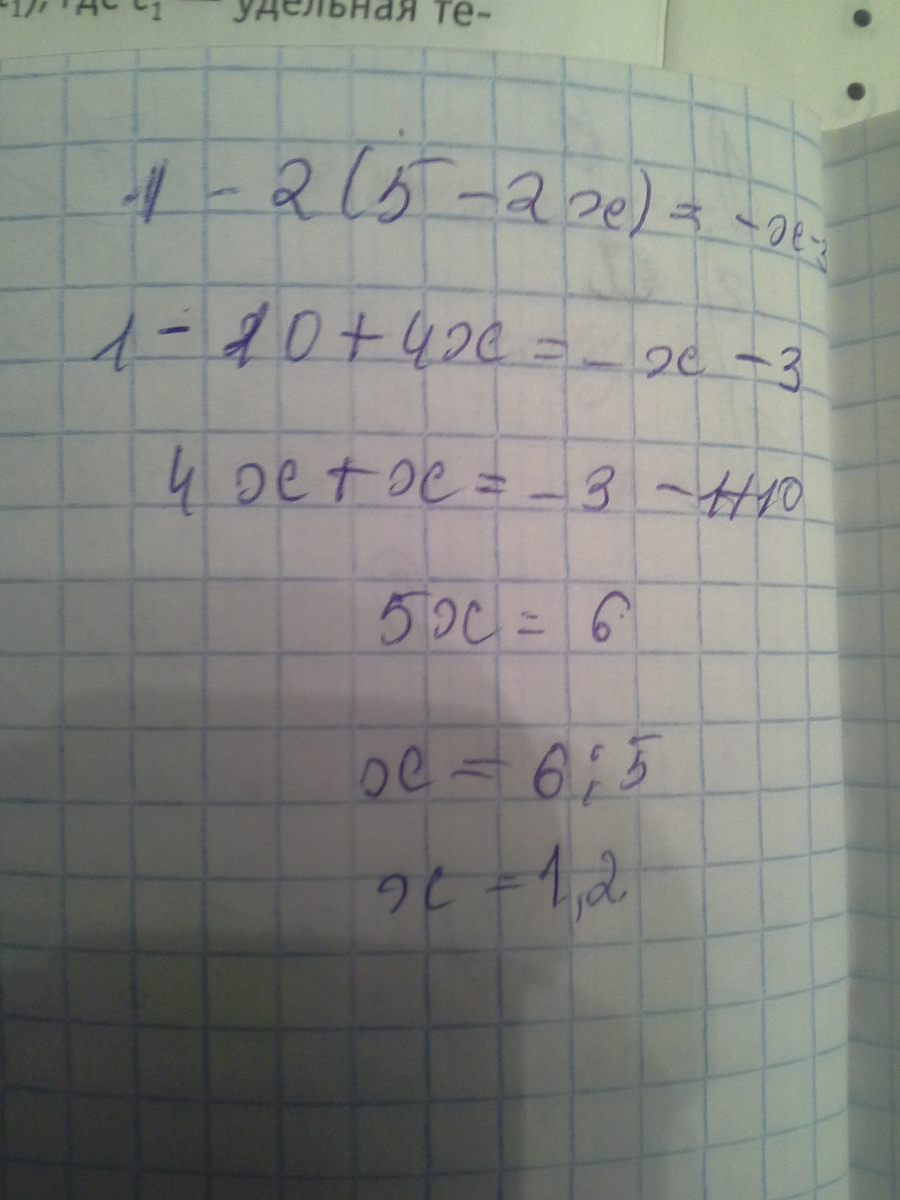 где c₁ — удельная те-
1 - 2(5 - 2x) = -x-3
1 - 10 + 4x = - x - 3
4x + x = - 3 - 1+10
5x = 6
x = 6 : 5
x = 1,2